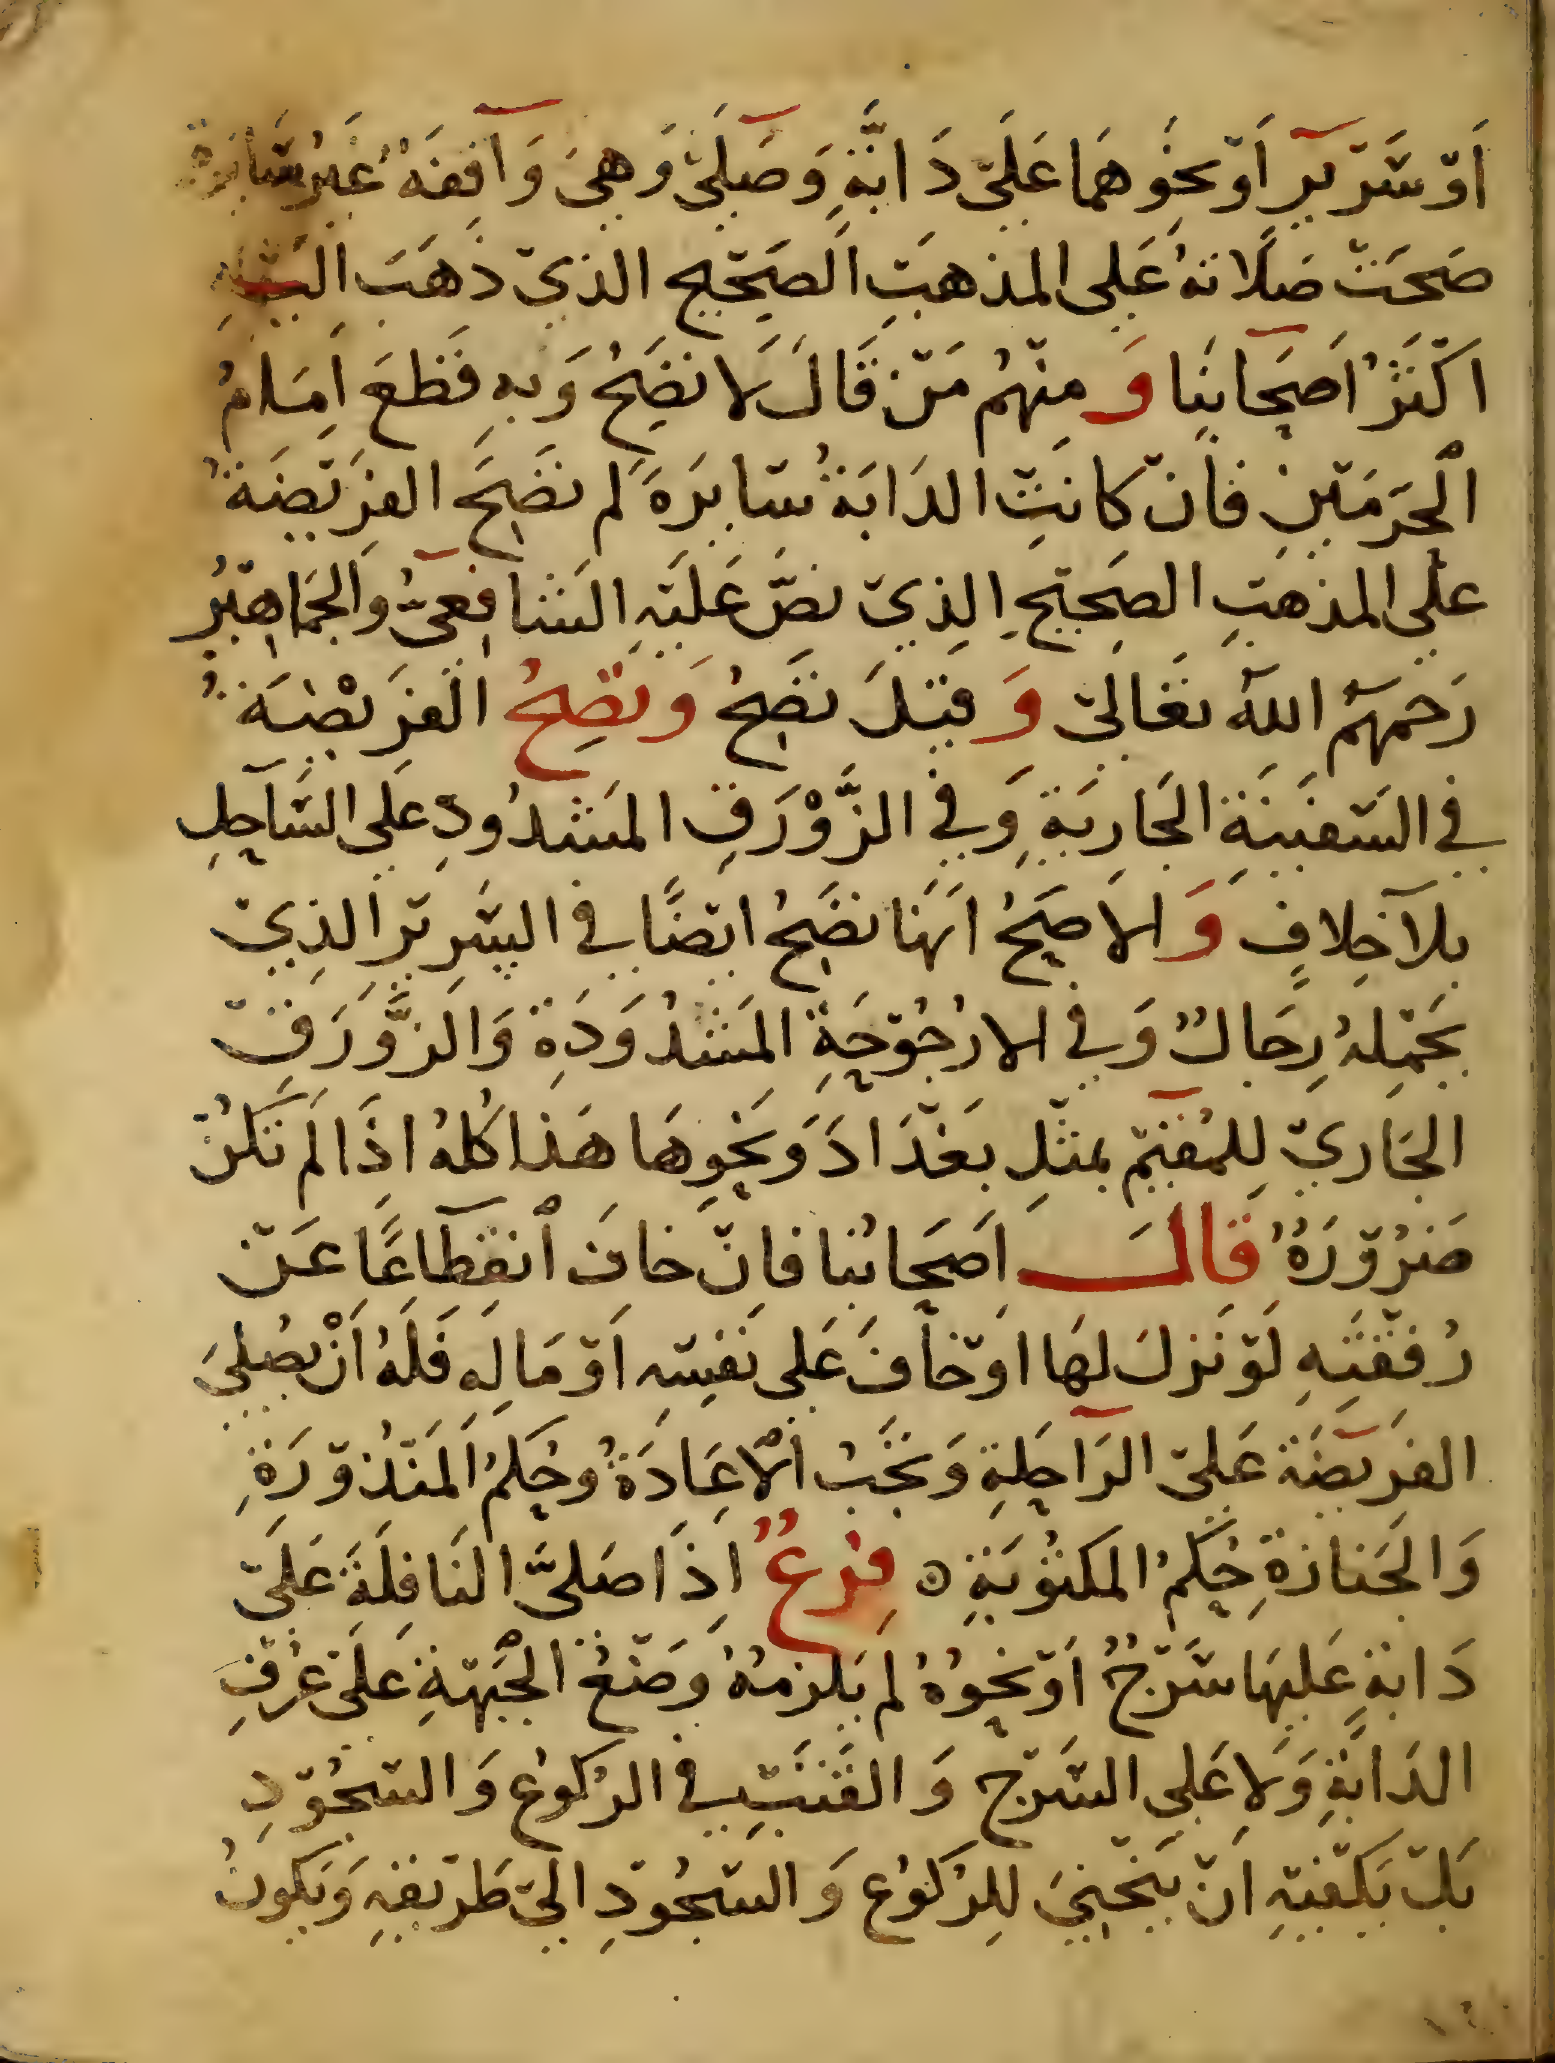 أَوْ سَرِيرٍ أَوْ نَحْوِهِمَا عَلَى دَابَّةٍ وَصَلَّى وَهِيَ وَاقِفَةٌ غَيْرُ سَائِرَةٍ
صَحَّتْ صَلَاتُهُ عَلَى المَذْهَبِ الصَّحِيحِ الذِي ذَهَبَ إِلَيْهِ
اكْثَرُ اصْحَابِنَا وَمِنْهُم مَنْ قَالَ لَا تَصِحُّ وَبِهِ قَطَعَ اِمَامُ
الْحَرَمَيْنِ فَانْ كَانَتِ الدَابَةُ سَايِرَةً لم تَصِحَّ الفَرِيْضَةُ
عَلَى المَذْهَبِ الصَحِيْحِ الذِيْ نصَّ عَلَيْهِ الشَافِعِيُّ وَالجَمَاهِيْرُ
رَحِمَهُمُ اللهُ تَعَالَى وَقِيْلَ تَصِحُّ وَتَصِحُّ الفَرِيْضَةُ
فِي السَفِيْنَةِ الجَارِيَةِ وَفِي الزَّوْرَقِ المَشْدُودِ عَلَى السَّاحِلِ
بِلَا خِلَافٍ وَالاصَحُّ اَنَّهَا تَصِحُّ ايْضًا فِي السَرِيْرِ الذِيْ
يَحْمِلُهُ رِجَالٌ وَفِي الارْجُوْحَةِ المَشْدُودَةِ وَالزَّوْرَقِ
الجَارِيْ لِلمُقِيْمِ بمِثْلِ بَغْدَادَ وَنَحْوِهَا هَذَا كُلُهُ اذَا لَمْ تَكُنْ
ضَرُوْرَةٌ قَالَ اَصْحَابُنَا فَانْ خَافَ انْقِطَاعًا عَنْ
رُفْقَتِهِ لَوْ نَزَلَ لَهَا اوْ خَافَ عَلَى نَفْسِهِ اَوْ مَالِهِ فَلَهُ اَنْ يُصَلِيَ
الفَرِيْضَةَ عَلَى الرَاحِلَةِ وَتَجِبُ الْاِعَادَةُ وَحُكْمُ المَنْذُوْرَةِ
وَالجَنَازَةِ حُكْمُ المَكْتُوْبَةِ ه فَرْعٌ اِذَا صَلَّى النَافِلَةَ عَلَى
دَابَةٍ عَلَيْهَا سَرْجٌ اَوْ نَحْوُهُ لم يَلْزَمْهُ وَضْعُ الجَبْهَةِ عَلَى عُرْفِ
الدَابَّةِ وَلا عَلَى السَرْجِ وَالقَتَبِ فِي الرُكُوعِ وَالسُجُوْدِ
بَلْ يَكْفِيْهِ اَنْ يَنْحَنِيَ لِلرُكُوْعِ وَالسُجُوْدِ الىْ طَرِيْقِهِ وَيَكُونُ